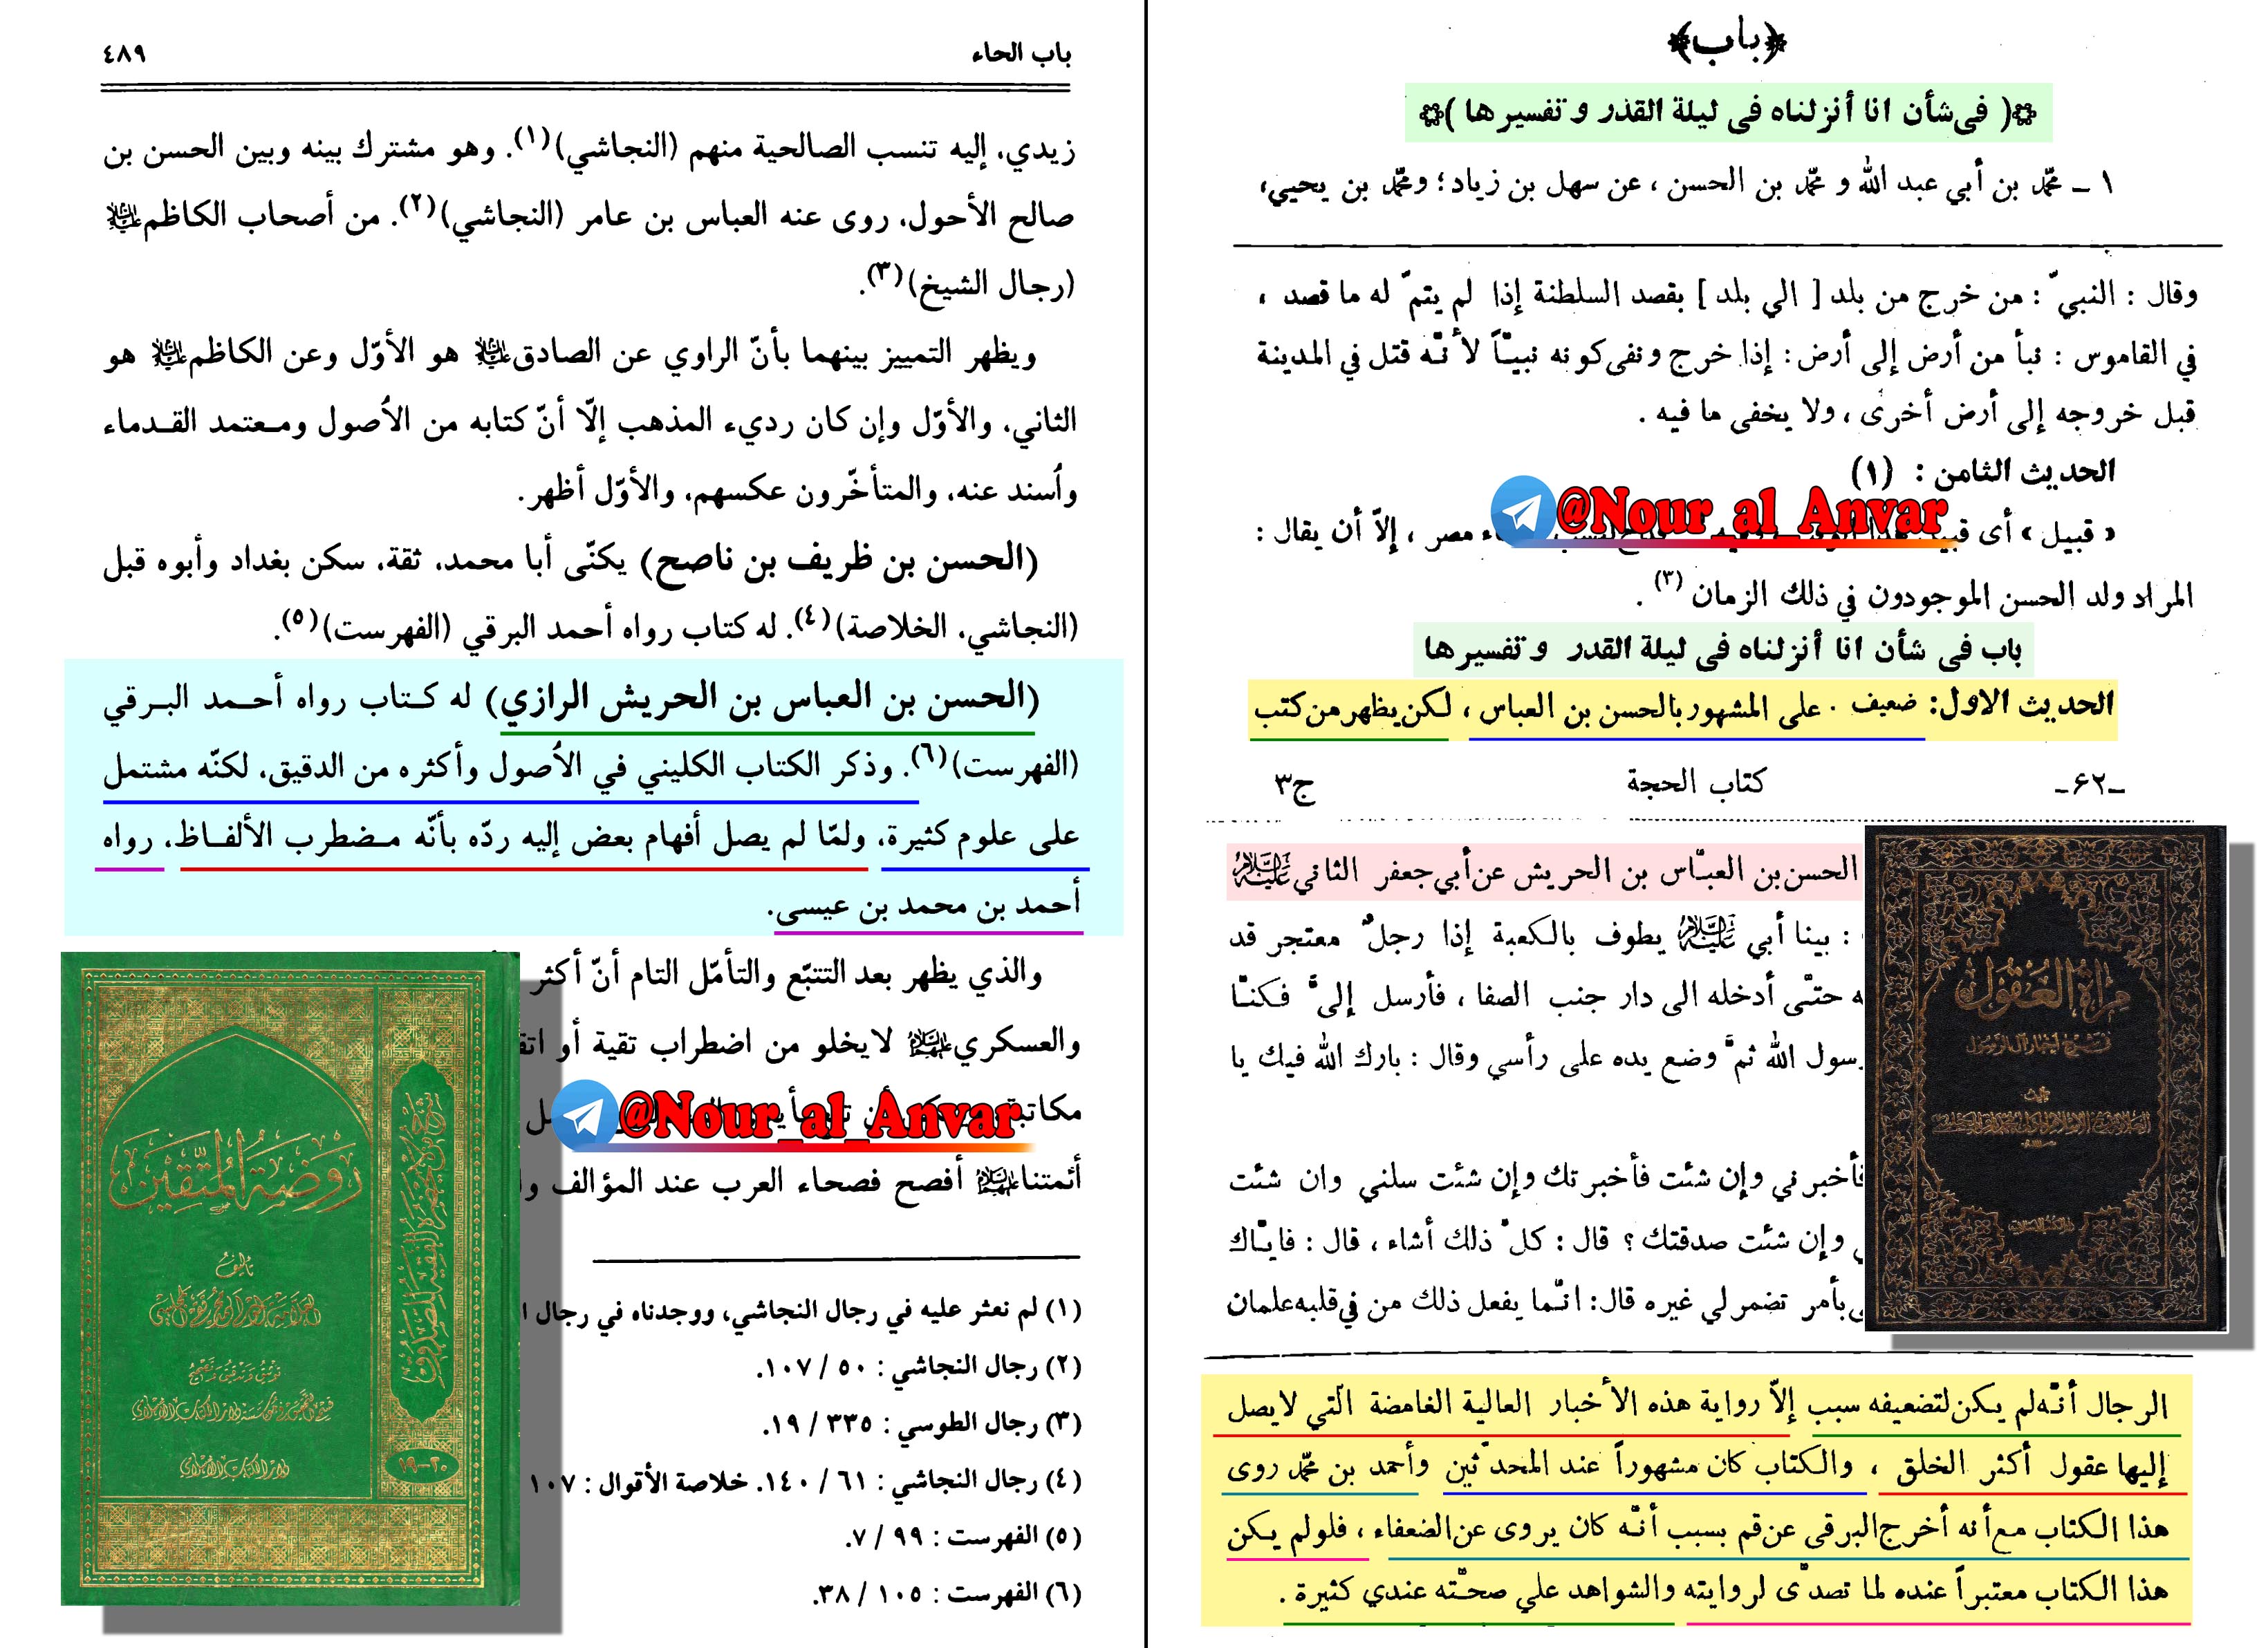 ﴿باب﴾
۞( فى شأن انا أنزلناه فى ليلة القدر و تفسيرها )۞
١ ـ محمّد بن أبي عبد الله و محمّد بن الحسن ، عن سهل بن زياد ؛ ومحمّد بن يحيي،
وقال : النبيّ : من خرج من بلد [ الي بلد ] بقصد السلطنة إذا لم يتمّ له ما قصد ،
في القاموس : نبأ من أرض إلى أرض : إذا خرج ونفى كونه نبيّاً لأنّه قتل في المدينة
قبل خروجه إلى أرض أخرى ، ولا يخفى ما فيه .
الحديث الثامن : (١)
@Nour_al_Anvar
« قبيل » أى مصر ، إلاّ أن يقال :
المراد ولد الحسن الموجودون في ذلك الزمان (٣) .
باب فى شأن انا أنزلناه فى ليلة القدر و تفسيرها
الحديث الاول: ضعيف . على المشهور بالحسن بن العباس ، لكن يظهر من كتب
ـ۶۲ـ كتاب الحجة ج٣
الحسن بن العبّاس بن الحريش عن أبي جعفر الثاني عليه السلام
: بينا أبي عليه السلام يطوف بالكعبة إذا رجلٌ معتجر قد
ه حتّى أدخله الى دار جنب الصفا ، فأرسل إليَّ فكنّا
رسول الله ثمَّ وضع يده على رأسي وقال : بارك الله فيك يا
فأخبرني وإن شئت فأخبرتك وإن شئت سلني وان شئت
وإن شئت صدقتك ؟ قال : كلّ ذلك أشاء ، قال : فايّاك
بأمر تضمر لي غيره قال: انّما يفعل ذلك من في قلبه علمان
الرجال أنّه لم يكن لتضعيفه سبب إلاّ رواية هذه الأخبار العالية الغامضة الّتي لا يصل
إليها عقول أكثر الخلق ، والكتاب كان مشهوراً عند المحدّثين وأحمد بن محمّد روى
هذا الكتاب مع أنه أخرج البرقى عن قم بسبب أنّه كان يروى عن الضعفاء ، فلو لم يكن
هذا الكتاب معتبراً عنده لما تصدّى لروايته والشواهد علي صحّته عندي كثيرة .
مرآة العقول
في شرح أخبار آل الرسول
باب الحاء ٤٨٩
زيدي، إليه تنسب الصالحية منهم (النجاشي)(١). وهو مشترك بينه وبين الحسن بن
صالح الأحول، روى عنه العباس بن عامر (النجاشي)(٢). من أصحاب الكاظم عليه السلام
(رجال الشيخ)(٣).
ويظهر التمييز بينهما بأنّ الراوي عن الصادق عليه السلام هو الأوّل وعن الكاظم عليه السلام هو
الثاني، والأوّل وإن كان رديء المذهب إلّا أنّ كتابه من الأصول ومعتمد القدماء
وأسند عنه، والمتأخّرون عكسهم، والأوّل أظهر.
(الحسن بن ظريف بن ناصح) يكنّى أبا محمد، ثقة، سكن بغداد وأبوه قبل
(النجاشي، الخلاصة)(٤). له كتاب رواه أحمد البرقي (الفهرست)(٥).
(الحسن بن العباس بن الحريش الرازي) له كتاب رواه أحمد البرقي
(الفهرست)(٦). وذكر الكتاب الكليني في الأصول وأكثره من الدقيق، لكنّه مشتمل
على علوم كثيرة، ولمّا لم يصل أفهام بعض إليه ردّه بأنّه مضطرب الألفاظ، رواه
أحمد بن محمد بن عيسى.
والذي يظهر بعد التتبّع والتأمّل التام أنّ أكثر
والعسكري عليهما السلام لايخلو من اضطراب تقية أو
@Nour_al_Anvar
أئمتنا عليهم السلام أفصح فصحاء العرب عند المؤالف
(١) لم نعثر عليه في رجال النجاشي، ووجدناه في رجال
(٢) رجال النجاشي : ٥٠ / ١٠٧.
(٣) رجال الطوسي : ٣٣٥ / ١٩.
(٤) رجال النجاشي : ٦١ / ١٤٠. خلاصة الأقوال : ١٠٧
(٥) الفهرست : ٩٩ / ٧.
(٦) الفهرست : ١٠٥ / ٣٨.
روضة المتقين
تأليف
شرح من لا يحضره الفقيه للصدوق
١٩-٢٠